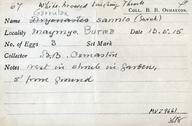 67 White browed Laughing Thrush
COLL. B. B. OSMASTON.
Dryonastes sannio (Swinh)
Locality Maymyo, Burma Date 13.5.15
No. of Eggs 3 Set Mark
Collector B.B. Osmaston
Notes nest in shrub in garden,
5' from ground